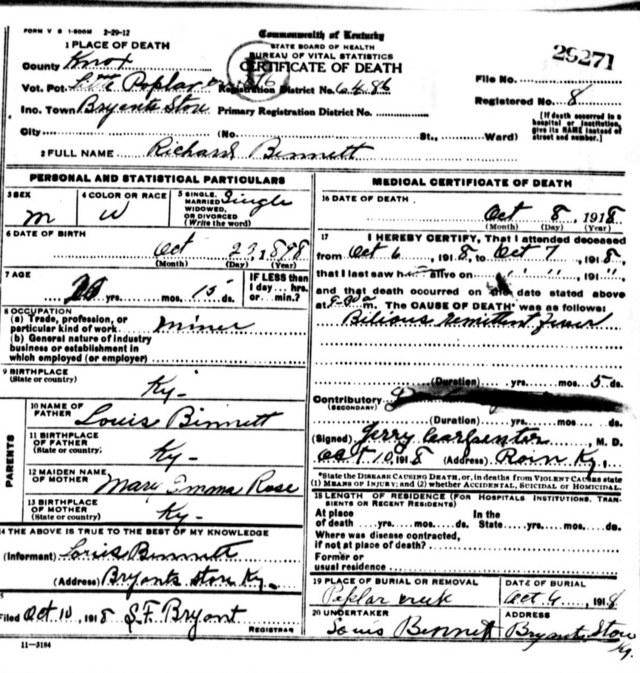 FORM V S 1-500M 2-29-12
Commonwealth of Kentucky
STATE BOARD OF HEALTH
BUREAU OF VITAL STATISTICS
CERTIFICATE OF DEATH
25271
1 PLACE OF DEATH
County Knox
Vot. Pct. Poplar Creek Registration District No. 6486
File No.
Inc. Town Bryants Store Primary Registration District No.
Registered No. 8
City (No. St., Ward)
[If death occurred in a hospital or institution, give its NAME instead of street and number.]
2 FULL NAME Richard Binnett
PERSONAL AND STATISTICAL PARTICULARS
3 SEX
m
4 COLOR OR RACE
W
5 SINGLE, MARRIED, WIDOWED, OR DIVORCED (Write the word)
Single
6 DATE OF BIRTH
Oct 23, 1898
(Month) (Day) (Year)
7 AGE
yrs. mos. 15 ds.
IF LESS than 1 day ... hrs. or ... min.?
8 OCCUPATION
(a) Trade, profession, or particular kind of work miner
(b) General nature of industry business or establishment in which employed (or employer)
9 BIRTHPLACE
(State or country) Ky-
PARENTS
10 NAME OF FATHER Louis Binnett
11 BIRTHPLACE OF FATHER (State or country) Ky-
12 MAIDEN NAME OF MOTHER Mary Emma Rose
13 BIRTHPLACE OF MOTHER (State or country) Ky-
14 THE ABOVE IS TRUE TO THE BEST OF MY KNOWLEDGE
(Informant) Louis Binnett
(Address) Bryants Store Ky.
Filed Oct 10, 1918 S.F. Bryant
REGISTRAR
11—3184
MEDICAL CERTIFICATE OF DEATH
16 DATE OF DEATH
Oct 8, 1918
(Month) (Day) (Year)
17 I HEREBY CERTIFY, That I attended deceased
from Oct 6, 1918, to Oct 7, 1918,
that I last saw h alive on " " " , 191",
and that death occurred on the date stated above
at m. The CAUSE OF DEATH was as follows:
Bilious Remittent Fever
(Duration) yrs. mos. 5 ds.
Contributory
(SECONDARY)
(Duration) yrs. mos. ds.
(Signed) Jerry Carpenter, M. D.
Oct 10, 1918 (Address) Ky.
*State the DISEASE CAUSING DEATH, or, in deaths from VIOLENT CAUSES state (1) MEANS OF INJURY; and (2) whether ACCIDENTAL, SUICIDAL or HOMICIDAL.
18 LENGTH OF RESIDENCE (FOR HOSPITALS INSTITUTIONS, TRANSIENTS OR RECENT RESIDENTS)
At place of death yrs. mos. ds. In the State yrs. mos. ds.
Where was disease contracted, if not at place of death?
Former or usual residence
19 PLACE OF BURIAL OR REMOVAL
Poplar creek
DATE OF BURIAL
Oct 9, 1918
20 UNDERTAKER
Louis Bennett
ADDRESS
Bryants Store Ky.